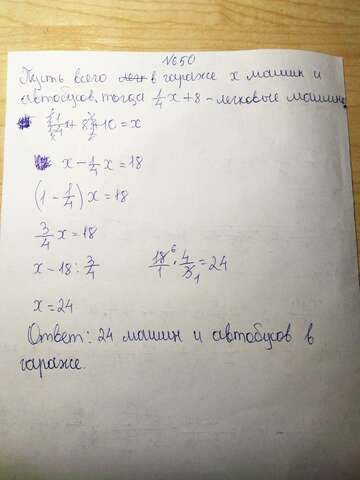 №650
Пусть всего в гараже x машин и
автобусов, тогда 1/4 x + 8 - легковые машины
(1/4 x + 8) + 10 = x
x - 1/4 x = 18
(1 - 1/4) x = 18
3/4 x = 18
x - 18 : 3/4
18/1 · 4/3 = 24
6
1
x = 24
Ответ: 24 машин и автобусов в
гараже.